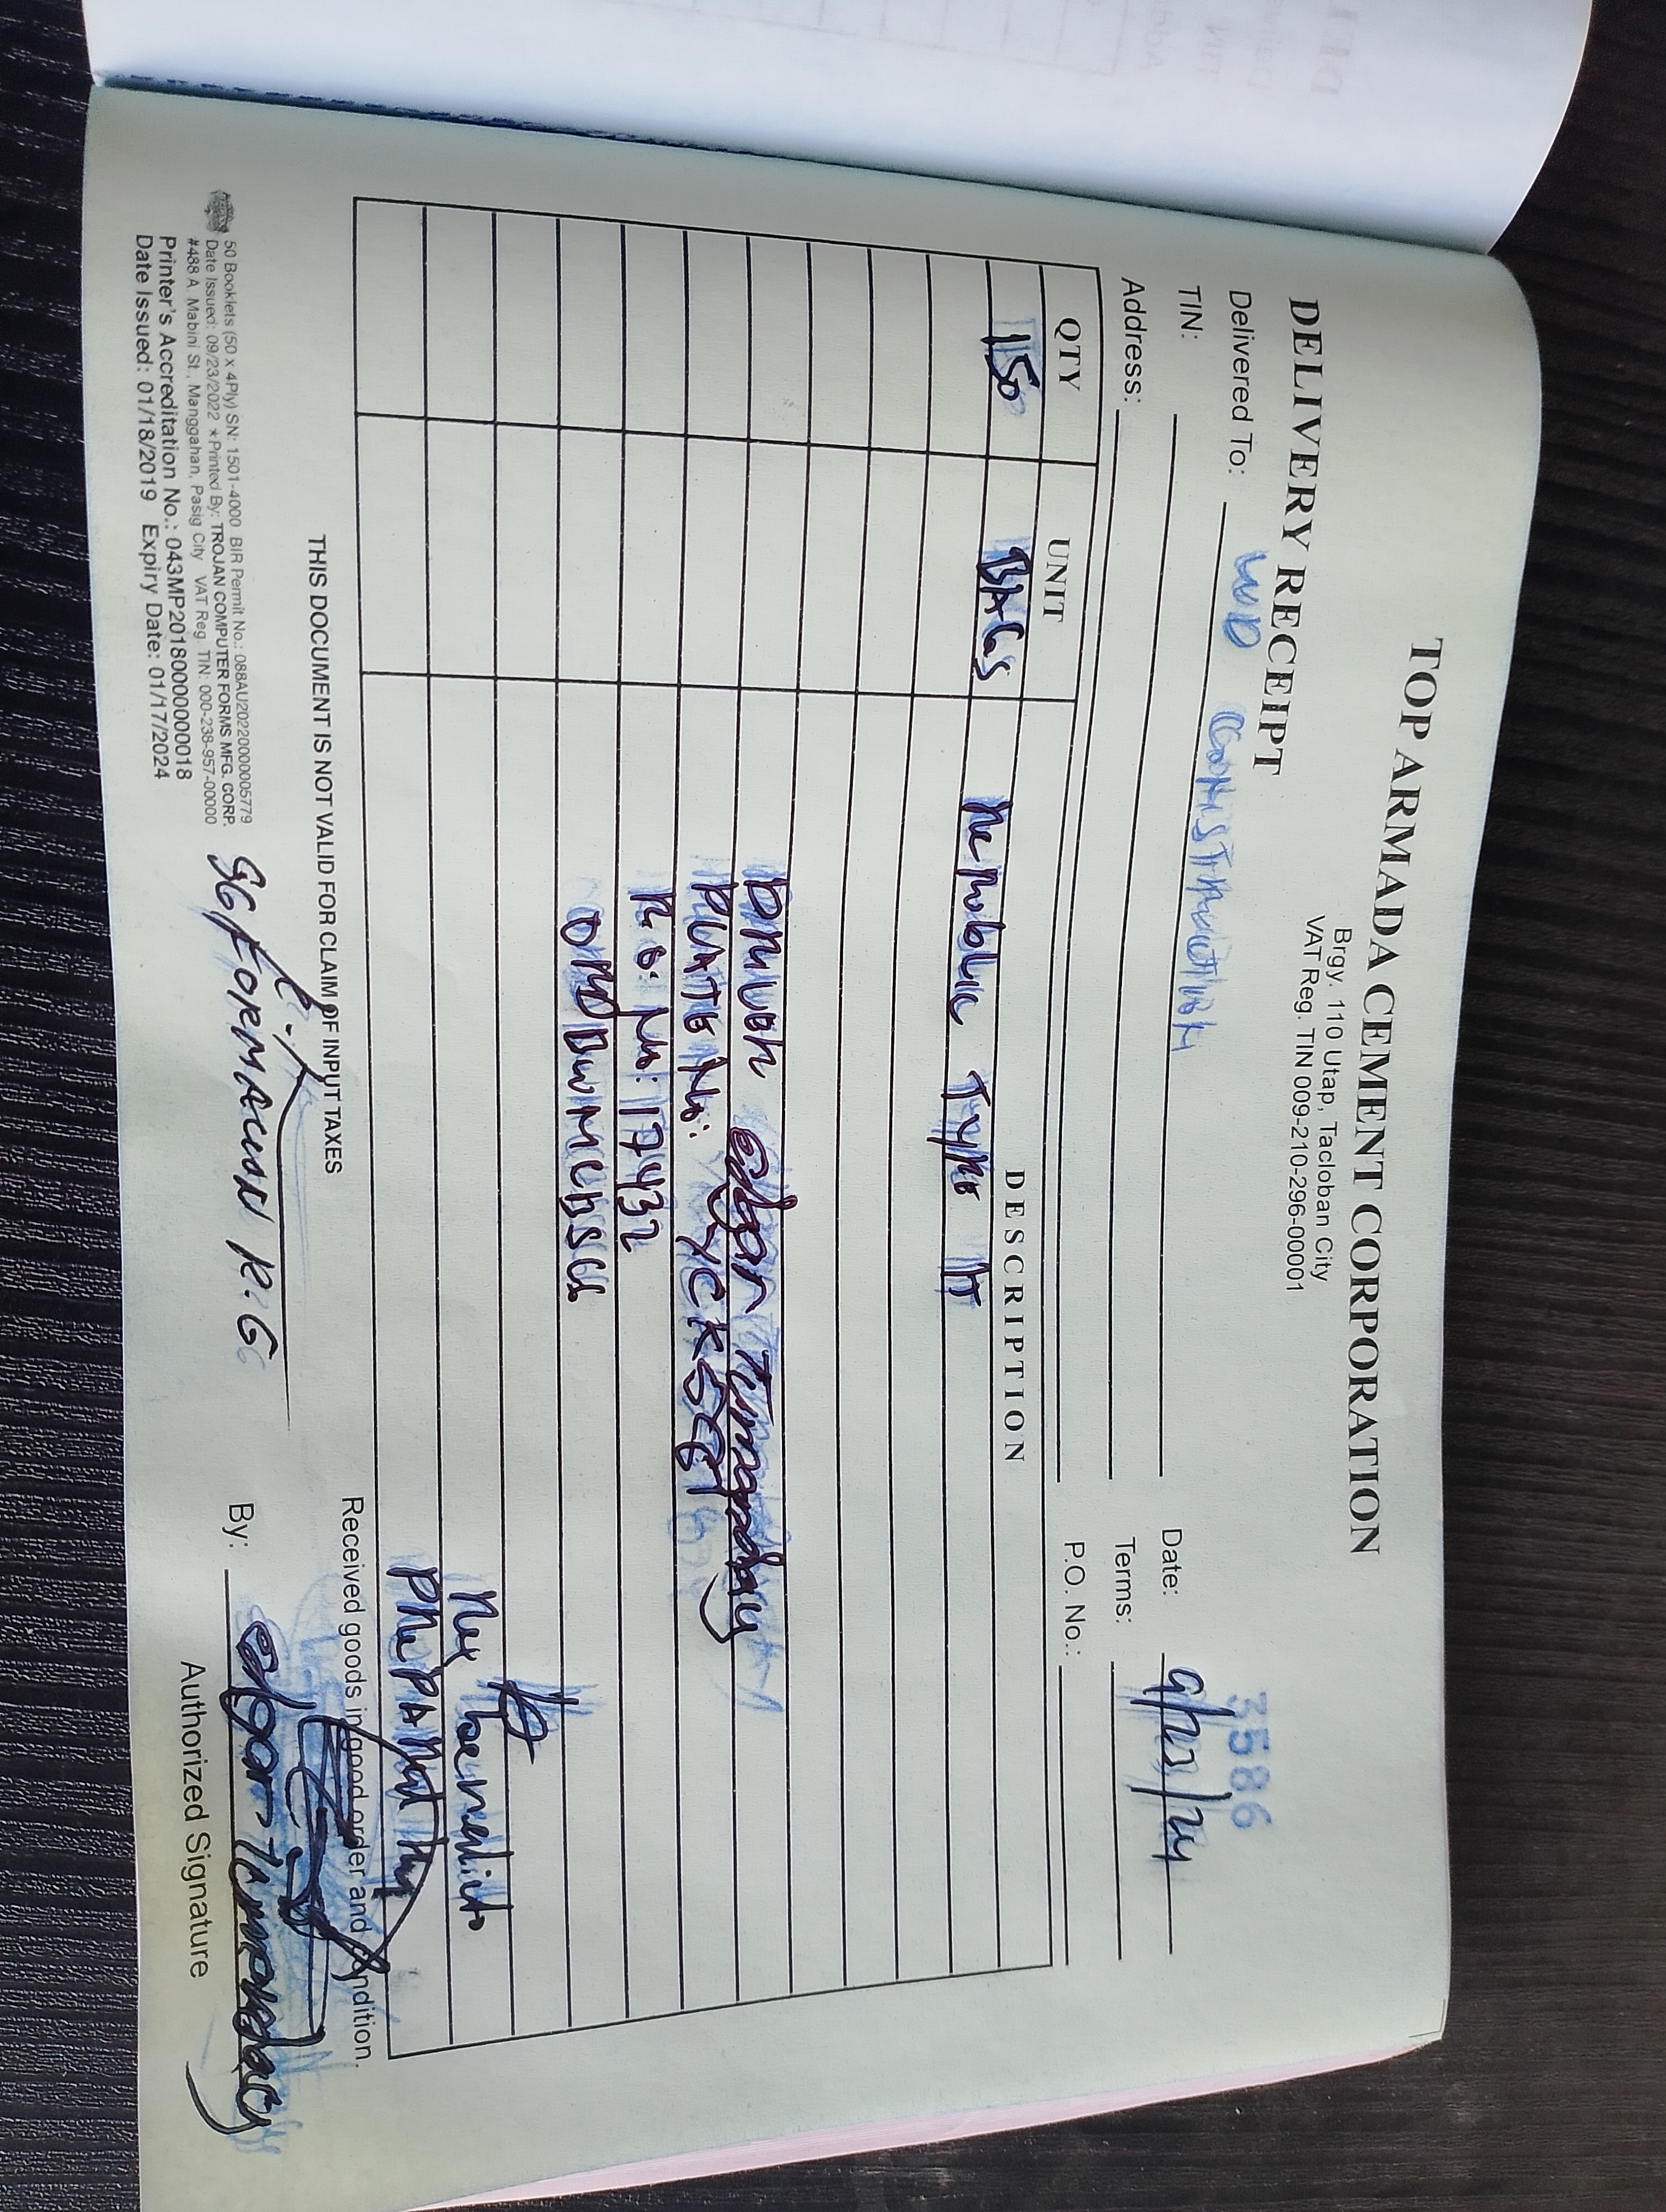 TOP ARMADA CEMENT CORPORATION
Brgy. 110 Utap, Tacloban City
VAT Reg. TIN 009-210-296-00001
DELIVERY RECEIPT
3586
Delivered To: WD CONSTRUCTION
Date: 9/23/24
TIN:
Terms:
Address:
P.O. No.:
QTY UNIT DESCRIPTION
150 BAGS Republic Type 1T
DRIVER edgar Tumanday
PLATE No: YCK 567
R.S. No: 17432
Rey benedicto
PREPARED BY
THIS DOCUMENT IS NOT VALID FOR CLAIM OF INPUT TAXES
Received goods in good order and condition.
50 Booklets (50 x 4Ply) SN: 1501-4000 BIR Permit No.: 088AU20220000005779
Date Issued: 09/23/2022 *Printed By: TROJAN COMPUTER FORMS MFG. CORP.
#488 A. Mabini St., Manggahan, Pasig City VAT Reg. TIN: 000-238-957-00000
Printer's Accreditation No.: 043MP20180000000018
Date Issued: 01/18/2019 Expiry Date: 01/17/2024
SG/FORMACION R.G
By: edgar Tumanday
Authorized Signature